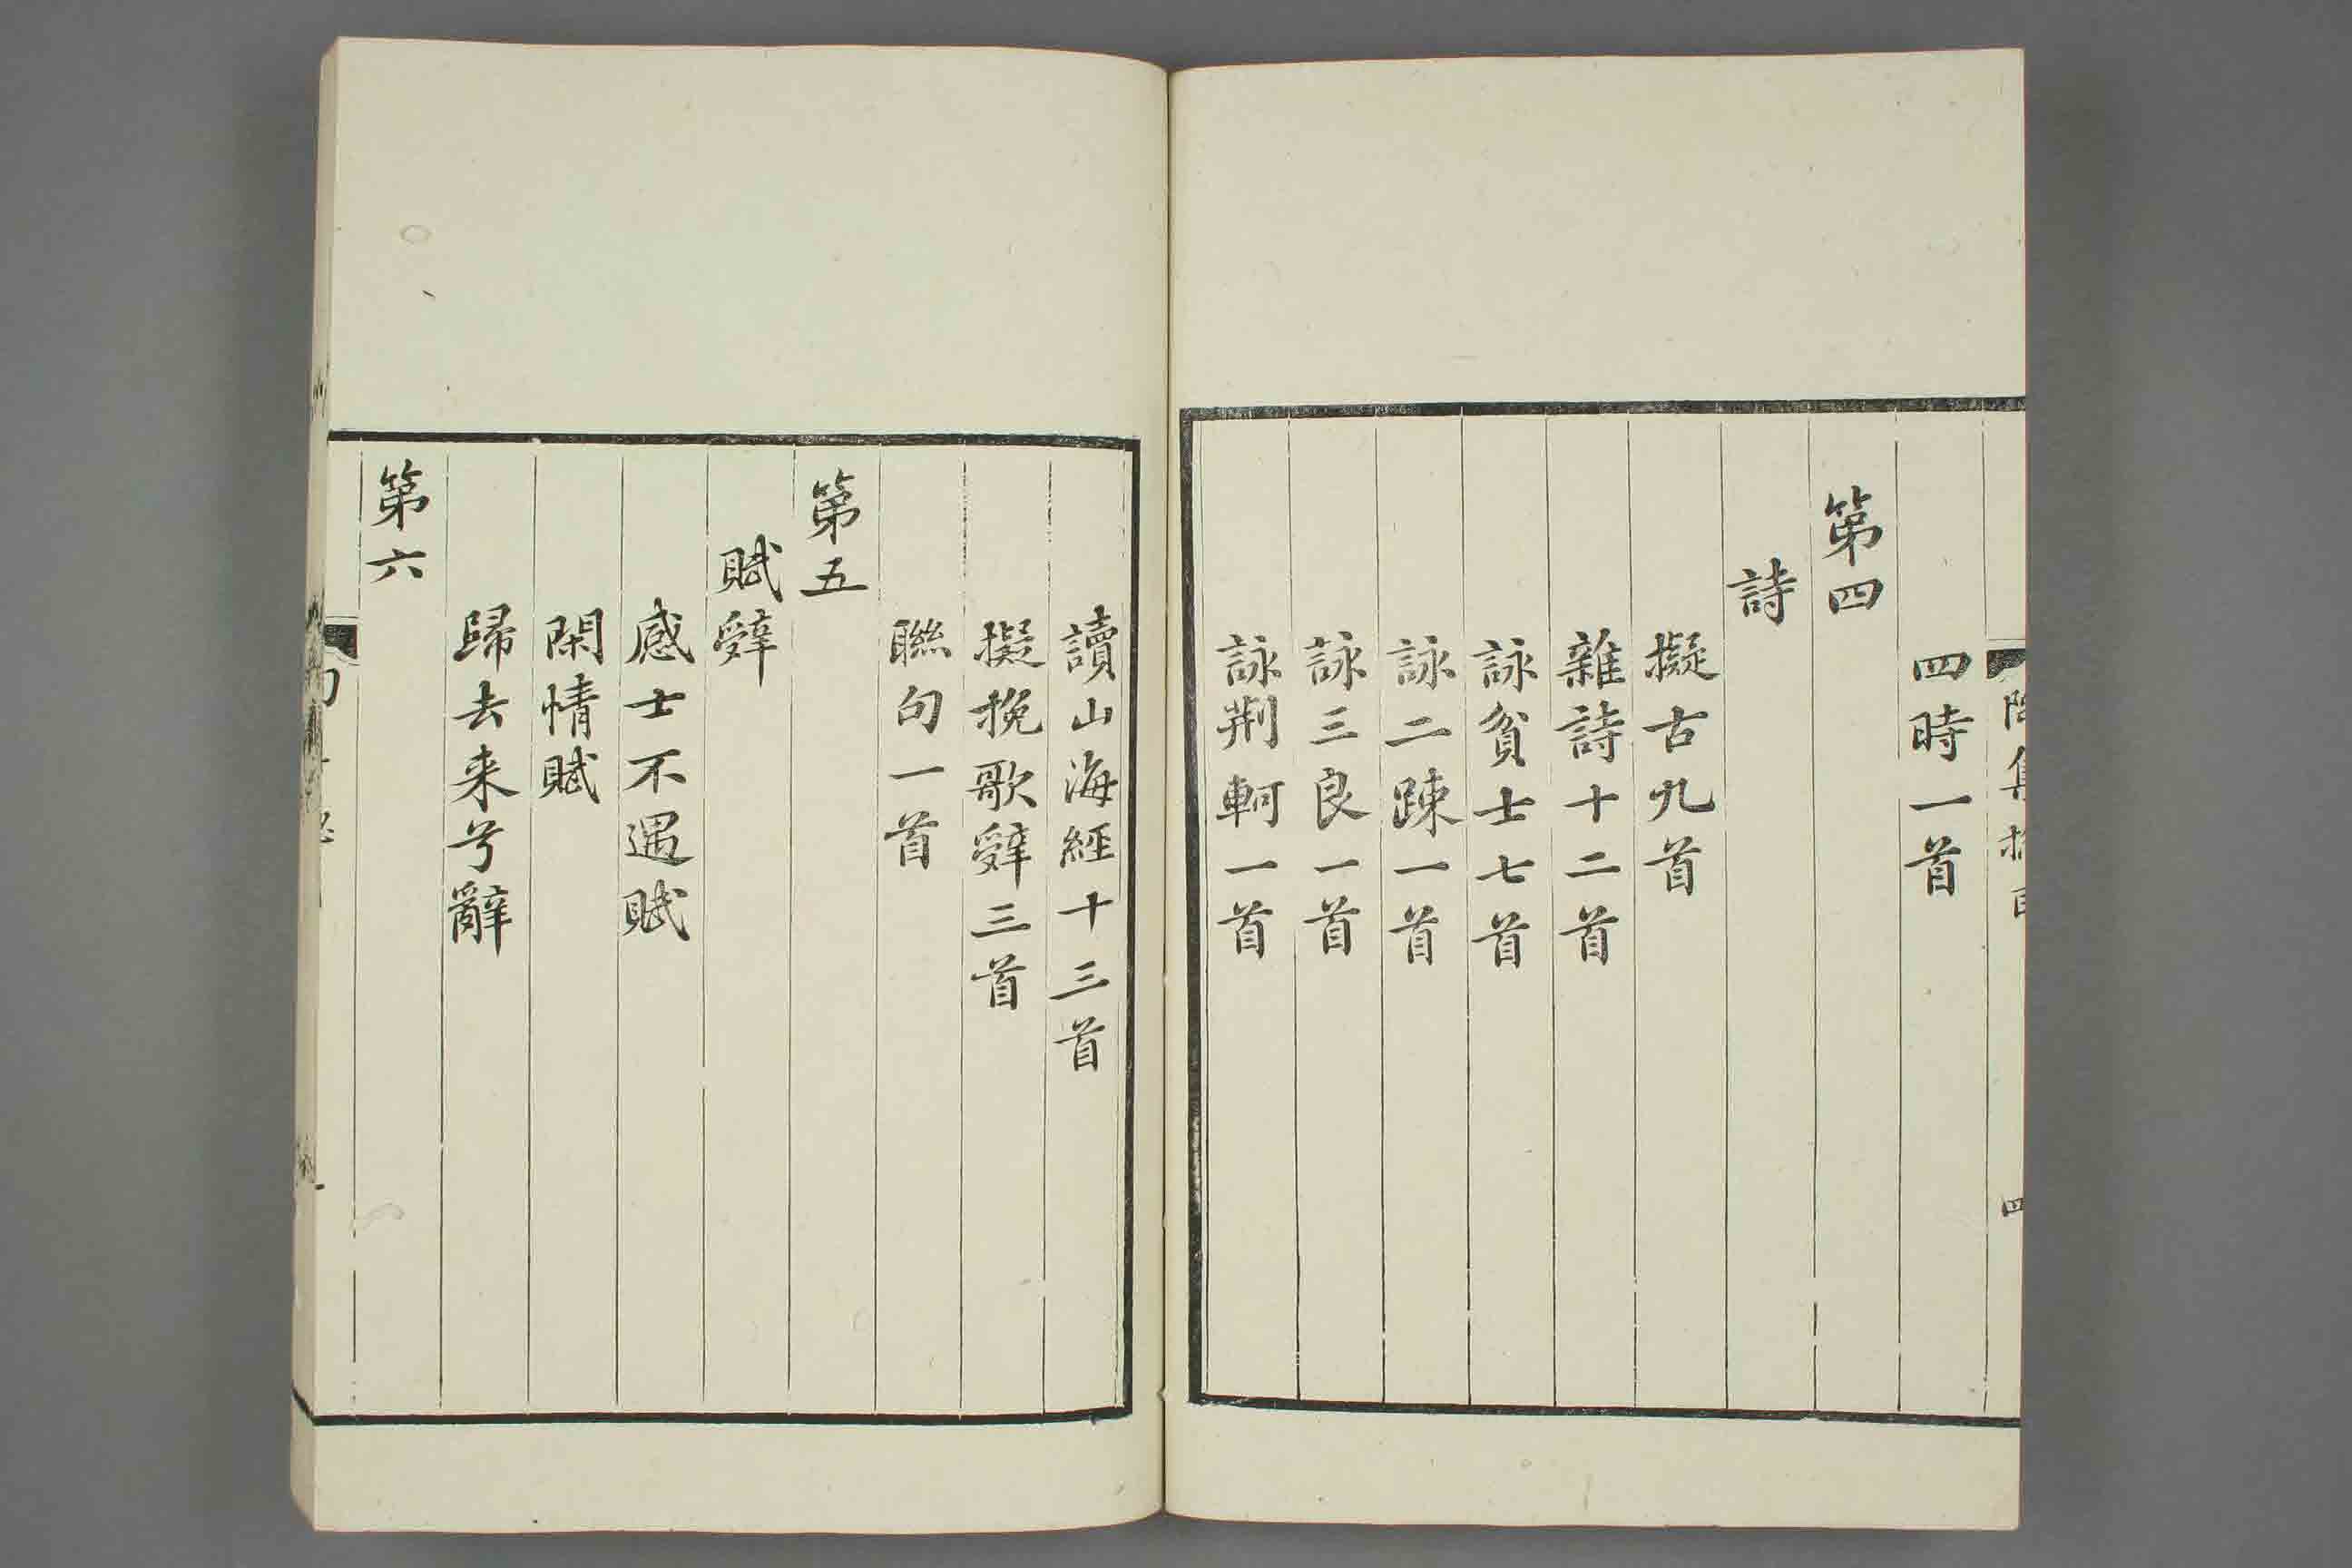 四時一首
第四
詩
擬古九首
雜詩十二首
詠貧士七首
詠二踈一首
詠三良一首
詠荆軻一首
讀山海經十三首
擬挽歌辤三首
聯句一首
第五
賦辤
感士不遇賦
閑情賦
歸去来兮辭
第六